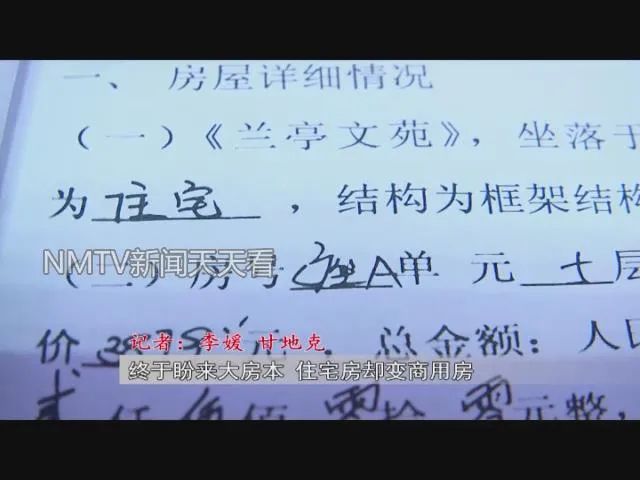 一、 房屋详细情况
（一）《兰亭文苑》，坐落于
为 住宅 ，结构为框架结构
NMTV新闻天天看
（二）房号 A单 元 十层
价 元，总金额：人民
记者：李媛 甘地克
终于盼来大房本 住宅房却变商用房
贰 仟 佰 零拾 零元整，